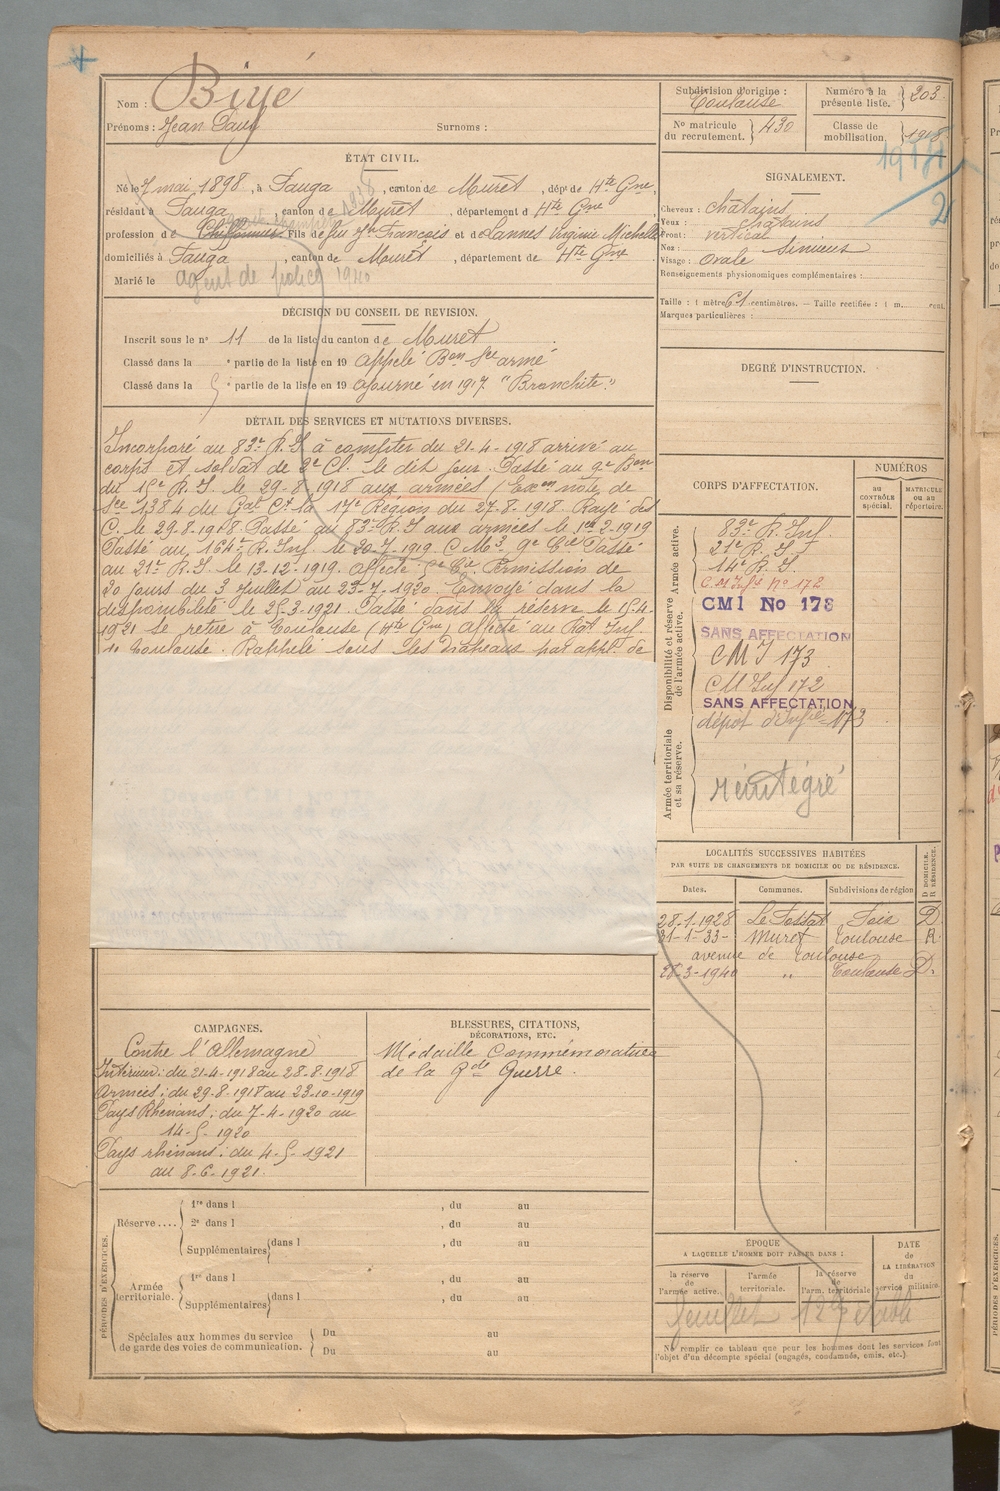 Nom : Biyé
Prénoms : Jean Paul Surnoms :
Subdivision d'origine : Toulouse
Numéro à la présente liste. } 203
No matricule du recrutement. } 430
Classe de mobilisation. } 1918
ÉTAT CIVIL.
Né le 7 mai 1898, à Fauga, canton de Muret, dépt de Hte Gne,
résidant à Fauga, canton de Muret, département d Hte Gne,
profession de Fils de feu Jh François et de Lannes Virginie Michelle
domiciliés à Fauga, canton de Muret, département de Hte Gne
Marié le
agent de police 1940
SIGNALEMENT.
Cheveux : châtains
Yeux : châtains
Front : vertical
Nez : Sinueux
Visage : ovale
Renseignements physionomiques complémentaires :
Taille : 1 mètre 61 centimètres. — Taille rectifiée : 1 m. cent.
Marques particulières :
DÉCISION DU CONSEIL DE REVISION.
Inscrit sous le no 11 de la liste du canton de Muret
Classé dans la e partie de la liste en 19 appelé Bon Sce armé
Classé dans la 5e partie de la liste en 19 ajourné en 1917. "Bronchite."
DEGRÉ D'INSTRUCTION.
DÉTAIL DES SERVICES ET MUTATIONS DIVERSES.
Incorporé au 83e R.I à compter du 21-4-1918 arrivé au
corps et soldat de 2e Cl. le dit jour. Passé au 9e Bon
du R.I. le 29-8-1918 aux armées (Exon note de
Sce 1384 du Gal Ct la 17e Région du 27-8-1918. Rayé des
C. le 29.8.1918 Passé au 83e R.I aux armées le 1er-2-1919
Passé au 164e R.Inf. le 20-7-1919 C.M3 9e Cie Passé
au 21e R.I le 13-12-1919. affecté Cie Permission de
20 jours du 3 Juillet au 23-7-1920. Envoyé dans la
disponibilité le Passé dans la réserve le 15-4-
1921 se retire à Toulouse (Hte Gne) Affecté au Rgt Inf.
Toulouse. Rappelé sous les drapeaux par appl. de
CORPS D'AFFECTATION.
NUMÉROS
au CONTRÔLE spécial.
MATRICULE ou au répertoire.
Armée active.
83e R. Inf.
21e R. I
14e R. I
C.M Inf No 172
Disponibilité et réserve de l'armée active.
CMI No 173
SANS AFFECTATION
CMI 173
CM Inf 172
SANS AFFECTATION
dépôt d'Infie 173
Armée territoriale et sa réserve.
réintégré
LOCALITÉS SUCCESSIVES HABITÉES
PAR SUITE DE CHANGEMENTS DE DOMICILE OU DE RÉSIDENCE.
Dates. Communes. Subdivisions de région D DOMICILE. R RÉSIDENCE.
28-1-1928 Le Fossat Foix D
31-1-33- Muret Toulouse R.
avenue de Toulouse
28-3-1940 " Toulouse D.
CAMPAGNES.
Contre l'Allemagne
Intérieur : du 21-4-1918 au 28-8-1918
Armées : du 29-8-1918 au 23-10-1919
Pays Rhénans : du 7-4-1920 au
14-5-1920
Pays rhénans : du 4-5-1921
au 8-6-1921.
BLESSURES, CITATIONS,
DÉCORATIONS, ETC.
Médaille Commémorative
de la Gde Guerre.
PÉRIODES D'EXERCICES.
Réserve....
1re dans l , du au
2e dans l , du au
Supplémentaires { dans l , du au
Armée territoriale.
1re dans l , du au
Supplémentaires { dans l , du au
Spéciales aux hommes du service de garde des voies de communication.
Du au
Du au
ÉPOQUE
A LAQUELLE L'HOMME DOIT PASSER DANS :
la réserve de l'armée active.
l'armée territoriale.
la réserve de l'arm. territoriale
DATE de LA LIBÉRATION du service militaire.
Ne remplir ce tableau que pour les hommes dont les services font
l'objet d'un décompte spécial (engagés, condamnés, omis, etc.)